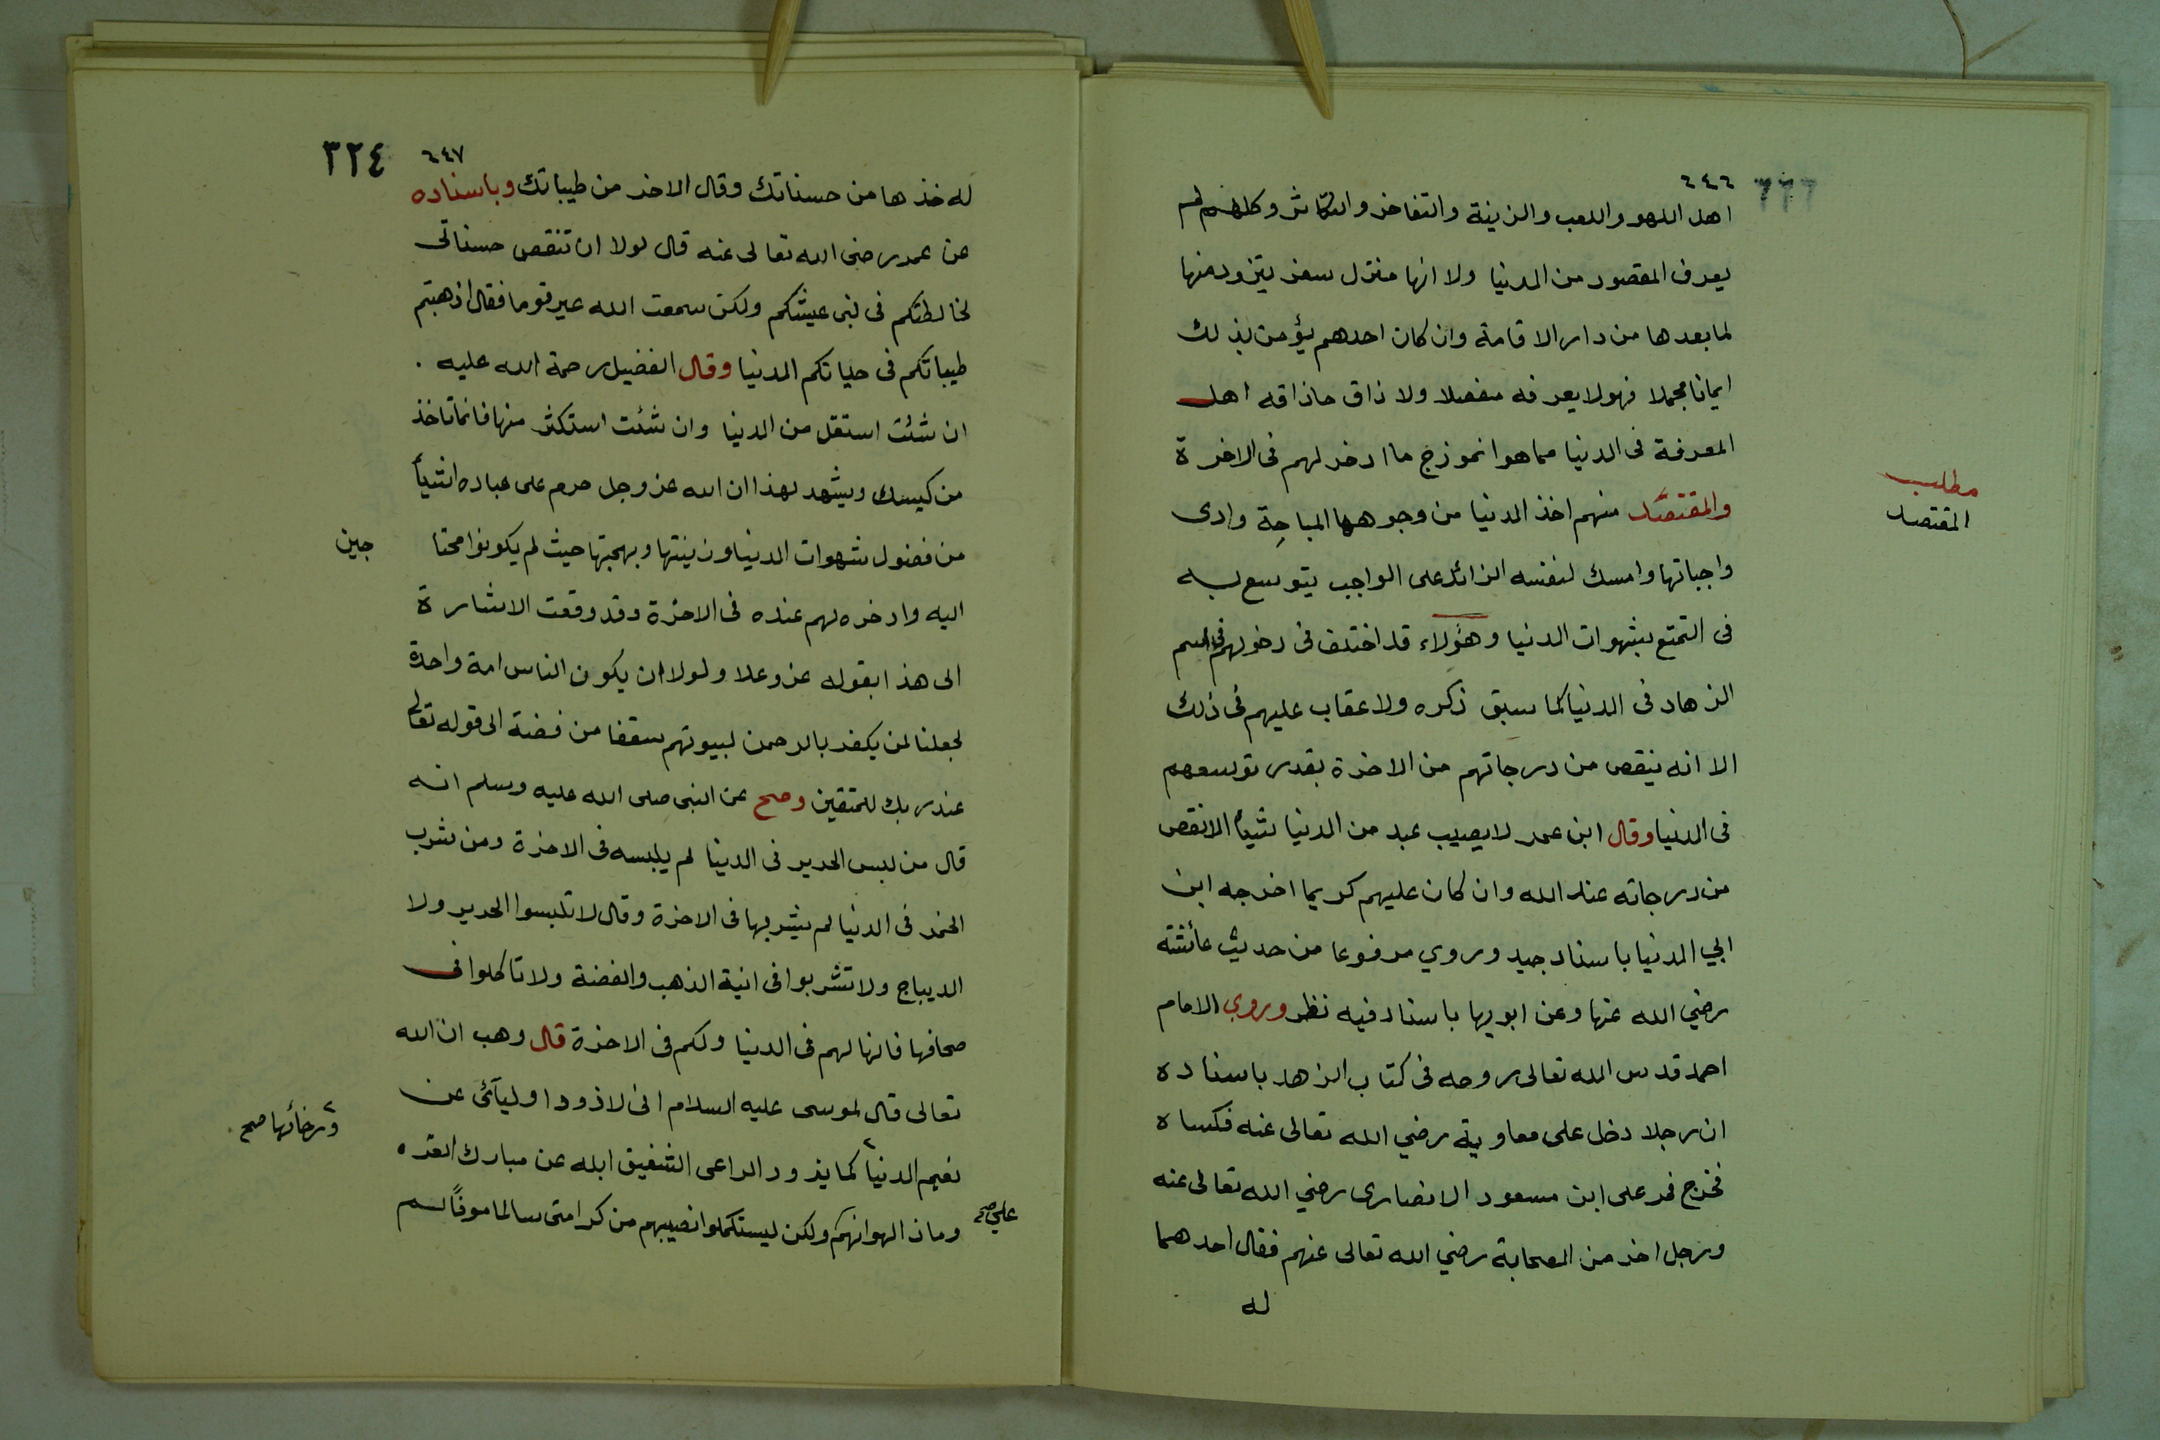 ٦٤٦
اهل اللهو واللعب والزينة والتفاخر والتكاثر وكلهم لم
يعرف المقصود من الدنيا ولا انها منزل سفر يتزود منها
لما بعدها من دار الاقامة وان كان احدهم يؤمن بذلك
ايمانا مجملا فهو لا يعرفه مفصلا ولا ذاق ماذاقه اهل
المعرفة فى الدنيا مما هو انموزج ما ادخر لهم فى الاخرة
والمقتصد منهم اخذ الدنيا من وجوهها المباحة وادى
مطلب
المقتصد
واجباتها وامسك لنفسه الزائد على الواجب يتوسع به
فى التمتع بشهوات الدنيا وهؤلاء قد اختلف فى دخولهم فى اسم
الزهاد فى الدنيا كما سبق ذكره ولا عقاب عليهم فى ذلك
الا انه ينقص من درجاتهم من الاخرة بقدر توسعهم
فى الدنيا وقال ابن عمر لا يصيب عبد من الدنيا شيأ الا نقص
من درجاته عند الله وان كان عليهم كريما اخرجه ابن
ابي الدنيا باسناد جيد وروي مرفوعا من حديث عائشة
رضي الله عنها وعن ابويها باسناد فيه نظر وروي الامام
احمد قدس الله تعالى روحه فى كتاب الزهد باسناده
ان رجلا دخل على معاوية رضي الله تعالى عنه فكساه
فخرج فمر على ابن مسعود الانصارى رضي الله تعالى عنه
ورجل اخر من الصحابة رضي الله تعالى عنهم فقال احدهما
له
٦٤٧
٣٢٤
له خذها من حسناتك وقال الاخر من طيباتك وباسناده
عن عمر رضى الله تعالى عنه قال لولا ان تنقص حسناتى
لخالطتكم فى لين عيشكم ولكن سمعت الله عير قوما فقال اذهبتم
طيباتكم فى حياتكم الدنيا وقال الفضيل رحمة الله عليه .
ان شئت استقل من الدنيا وان شئت استكثر منها فانما تاخذ
من كيسك ويشهد لهذا ان الله عز وجل حرم على عباده اشيأ
من فضول شهوات الدنيا وزينتها وبهجتها حيث لم يكونوا محتا جين
اليه وادخره لهم عنده فى الاخرة وقد وقعت الاشارة
الى هذا بقوله عز وعلا ولولا ان يكون الناس امة واحدة
لجعلنا لمن يكفر بالرحمن لبيوتهم سقفا من فضة الى قوله تعالى
عند ربك للمتقين وصح عن النبى صلى الله عليه وسلم انه
قال من لبس الحرير فى الدنيا لم يلبسه فى الاخرة ومن شرب
الخمر فى الدنيا لم يشربها فى الاخرة وقال لا تلبسوا الحرير ولا
الديباج ولا تشربوا فى انية الذهب والفضة ولا تاكلوا فى
صحافها فانها لهم فى الدنيا ولكم فى الاخرة قال وهب ان الله
تعالى قال لموسى عليه السلام انى لاذود اوليآئى عن
نعيم الدنيا كما يذود الراعى الشفيق ابله عن مبارك العره
ورخائها صح
وماذا لهوانهم ولكن ليستكملوا نصيبهم من كرامتى سالما موفًا لم
علي صح